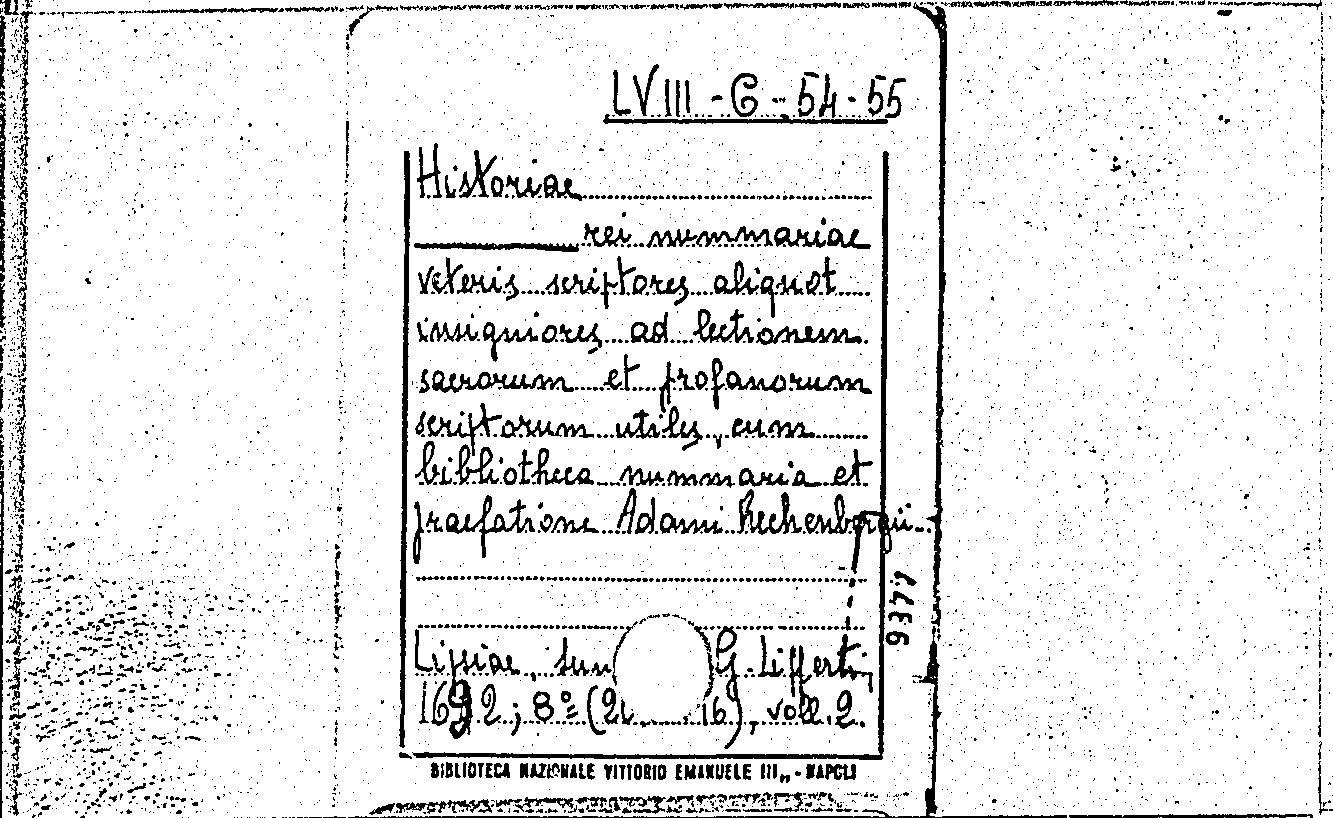 LVIII - G - 54 - 55
Historiae
rei nummariae
veteris scriptores aliquot
insigniores ad lectionem
sacrorum et profanorum
scriptorum utiles, cum
bibliotheca nummaria et
praefatione Adami Rechenbergii
9377
Lipsiae, sum G. Lifferti,
1692; 8º (2 16), voll. 2.
BIBLIOTECA NAZIONALE VITTORIO EMANUELE III„ - NAPOLI